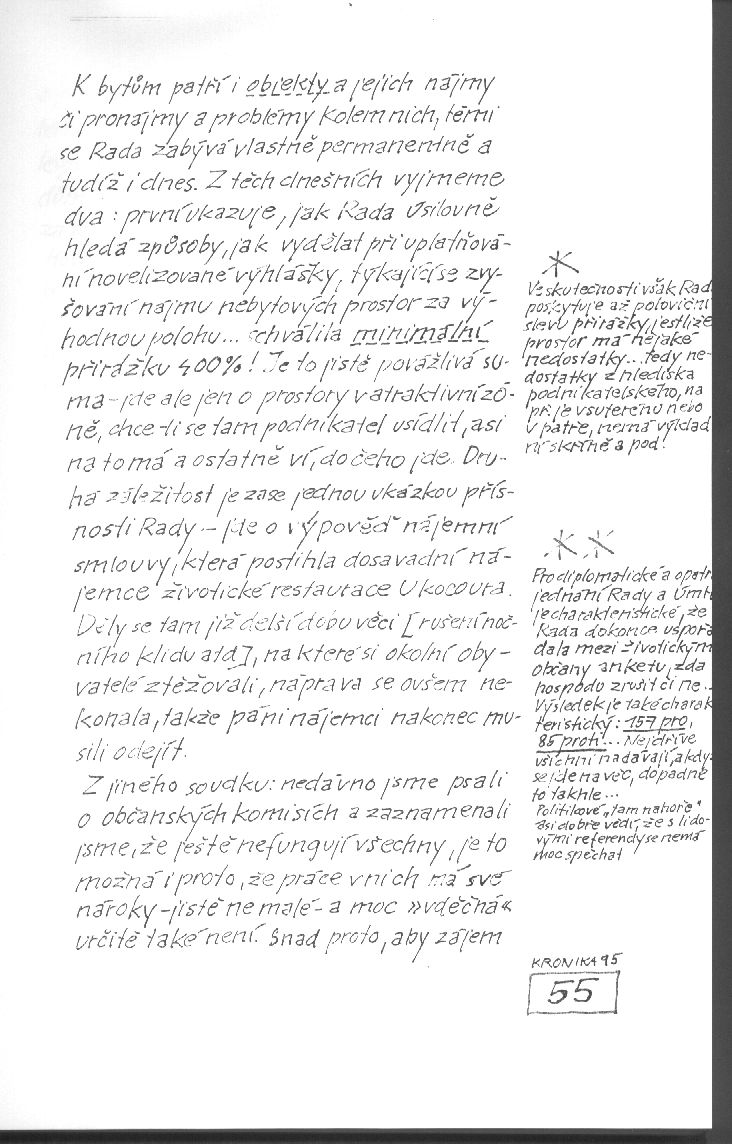 K bytům patří i objekty a jejich nájmy
či pronájmy a problémy kolem nich, těmi
se Rada zabývá vlastně permanentně a
tudíž i dnes. Z těch dnešních vyjmeme
dva : první ukazuje, jak Rada úsilovně
hledá způsoby, jak vydělat při uplatňová-
ní novelizované vyhlášky, týkající se zvy-
šování nájmu nebytových prostor za vý-
hodnou polohu... schválila minimální
přirážku 400% ! Je to jistě povážlivá su-
ma - jde ale jen o prostory v atraktivní zó-
ně, chce-li se tam podnikatel usídlit, asi
na to má a ostatně ví, do čeho jde. Dru-
há záležitost je zase jednou ukázkou přís-
nosti Rady - jde o výpověď nájemní
smlouvy, která postihla dosavadní ná-
jemce životické restaurace U kocoura.
Děly se tam již delší dobu věci [rušení noč-
ního klidu atd], na které si okolní oby-
vatelé ztěžovali, náprava se ovšem ne-
konala, takže páni nájemci nakonec mu-
sili odejít.
Z jiného soudku: nedávno jsme psali
o občanských komisích a zaznamenali
jsme, že ještě nefungují všechny, je to
možná i proto, že práce v nich má své
nároky - jistě ne malé - a moc »vděčná«
určitě také není. Snad proto, aby zájem
*
Ve skutečnosti však Rad
poskytuje až poloviční
slevu přirážky, jestliže
prostor má nějaké
nedostatky... tedy ne-
dostatky z hlediska
podnikatelského, na
př. je v suterénu nebo
v patře, nemá výklad
ní skříně a pod.
* *
Pro diplomatické a opatr
jednání Rady a Úmt
je charakteristické, že
Rada dokonce uspořá
dala mezi životickým
občany anketu, zda
hospodu zrušit či ne..
Výsledek je také charak
teristický : 157 pro,
85 proti!... Nejdříve
všichni nadávají, a kdy
se jde na věc, dopadne
to takhle...
Politikové „tam nahoře"
asi dobře vědí, že s lido-
vými referendy se nemá
moc spěchat
KRONIKA 95
55